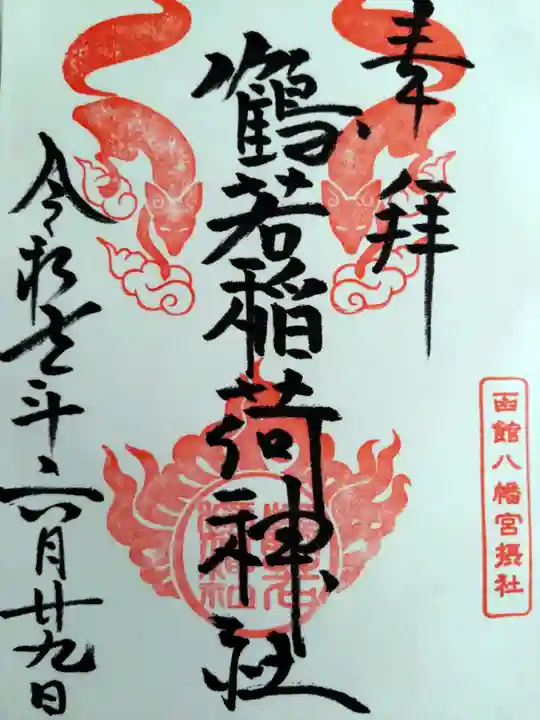 奉拝
函館八幡宮摂社
鶴若稲荷神社
令和元年六月廿九日